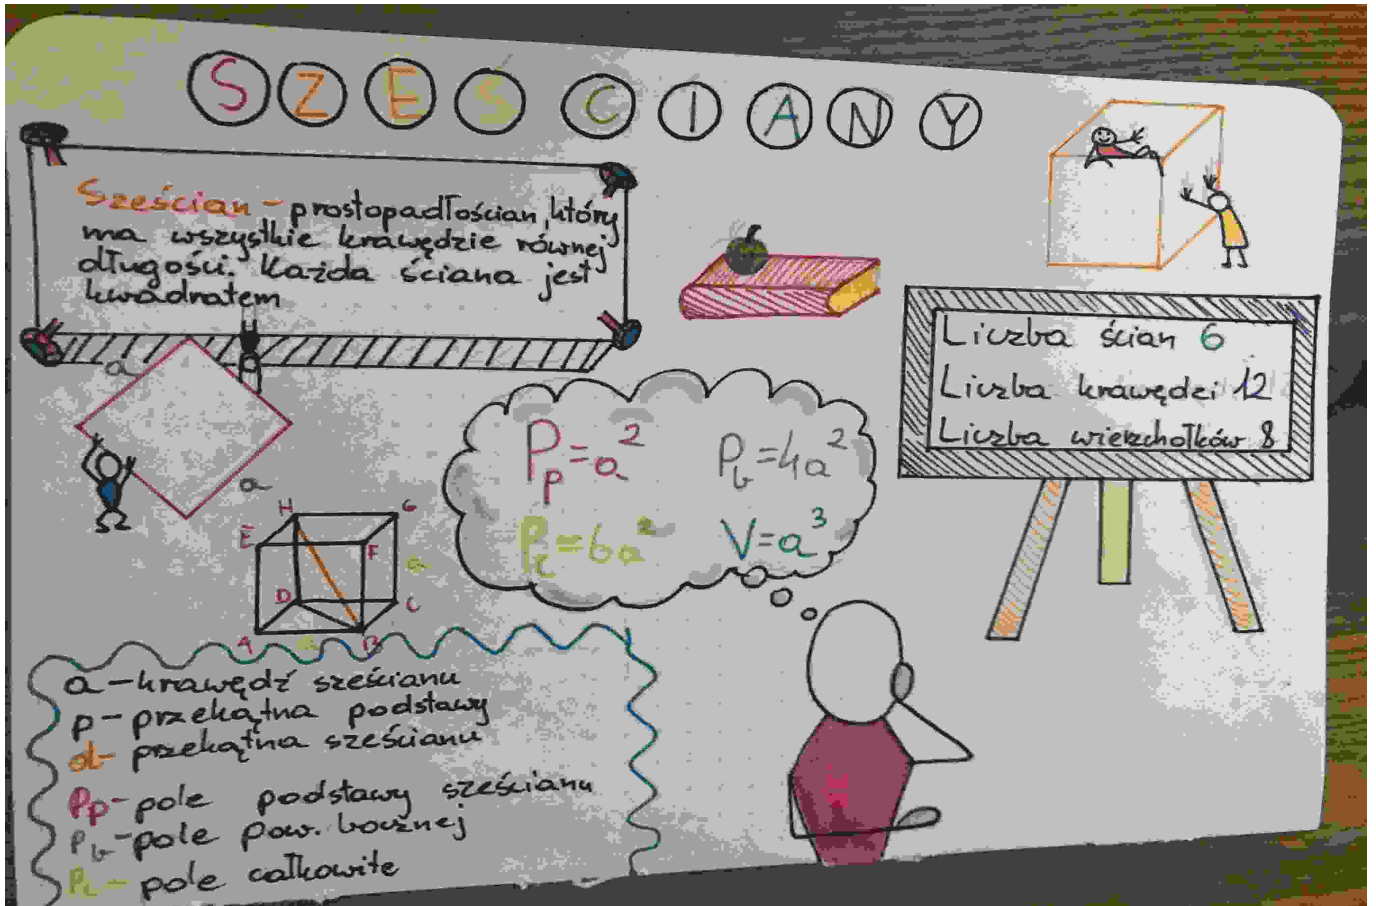 SZEŚCIANY
Sześcian - prostopadłościan, który
ma wszystkie krawędzie równej
długości. Każda ściana jest
kwadratem
Liczba ścian 6
Liczba krawędzi 12
Liczba wierzchołków 8
a
a
Pp=a²
Pb=4a²
Pc=6a²
V=a³
H
G
E
F
a
D
C
A
a
B
a - krawędź sześcianu
p - przekątna podstawy
d - przekątna sześcianu
Pp - pole podstawy sześcianu
Pb - pole pow. bocznej
Pc - pole całkowite